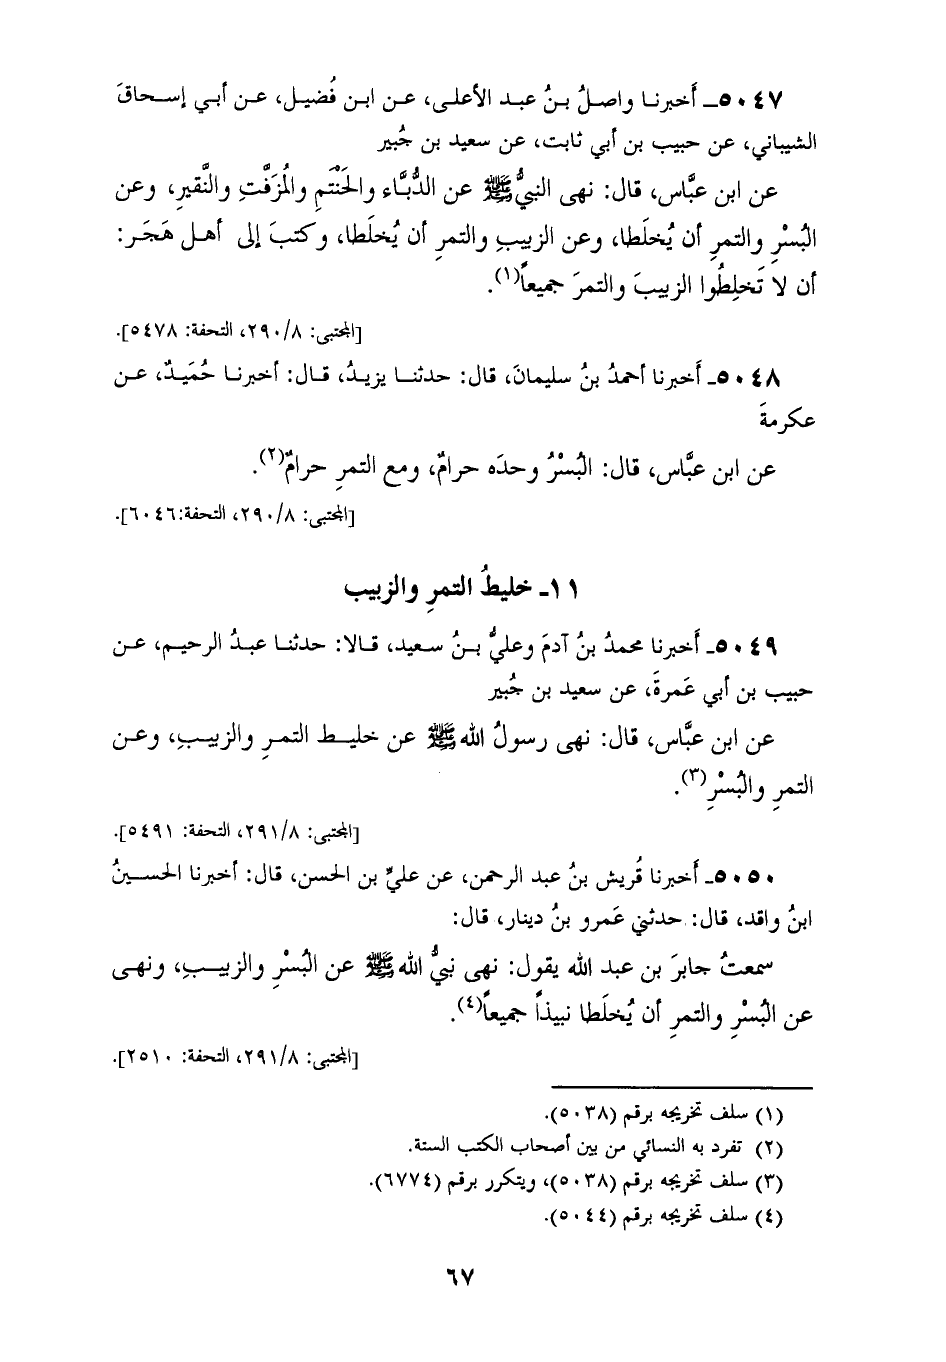 ٥٠٤٧ـ أَخبرنا واصلُ بنُ عبد الأعلى، عن ابن فُضيل، عن أبي إسحاقَ
الشيباني، عن حبيب بن أبي ثابت، عن سعيد بن جُبير
عن ابن عبَّاس، قال: نهى النبيُّ ﷺ عن الدُّبَّاء والحَنْتَمِ والمُزَفَّتِ والنَّقيرِ، وعن
البُسْرِ والتمرِ أن يُخلَطا، وعن الزبيبِ والتمرِ أن يُخلَطا، وكتبَ إلى أهل هَجَر:
أن لا تَخلِطُوا الزبيبَ والتمرَ جميعاً(١).
[المجتبى: ٢٩٠/٨، التحفة: ٥٤٧٨].
٥٠٤٨ـ أَخبرنا أحمدُ بنُ سليمانَ، قال: حدثنا يزيدُ، قال: أخبرنا حُمَيدٌ، عن
عكرمةَ
عن ابن عبَّاس، قال: البُسْرُ وحدَه حرامٌ، ومع التمرِ حرامٌ(٢).
[المجتبى: ٢٩٠/٨، التحفة:٦٠٤٦].
١١ـ خليطُ التمرِ والزبيب
٥٠٤٩ـ أَخبرنا محمدُ بنُ آدمَ وعليُّ بنُ سعيد، قالا: حدثنا عبدُ الرحيم، عن
حبيب بن أبي عَمرةَ، عن سعيد بن جُبير
عن ابن عبَّاس، قال: نهى رسولُ الله ﷺ عن خليط التمرِ والزبيبِ، وعن
التمرِ والبُسْرِ(٣).
[المجتبى: ٢٩١/٨، التحفة: ٥٤٩١].
٥٠٥٠ـ أَخبرنا قُريش بنُ عبد الرحمن، عن عليِّ بن الحسن، قال: أخبرنا الحسينُ
ابنُ واقد، قال: حدثني عَمرو بنُ دينار، قال:
سمعتُ جابرَ بن عبد الله يقول: نهى نبيُّ الله ﷺ عن البُسْرِ والزبيبِ، ونهى
عن البُسْرِ والتمرِ أن يُخلَطا نبيذاً جميعاً(٤).
[المجتبى: ٢٩١/٨، التحفة: ٢٥١٠].
(١) سلف تخريجه برقم (٥٠٣٨).
(٢) تفرد به النسائي من بين أصحاب الكتب الستة.
(٣) سلف تخريجه برقم (٥٠٣٨)، ويتكرر برقم (٦٧٧٤).
(٤) سلف تخريجه برقم (٥٠٤٤).
٦٧